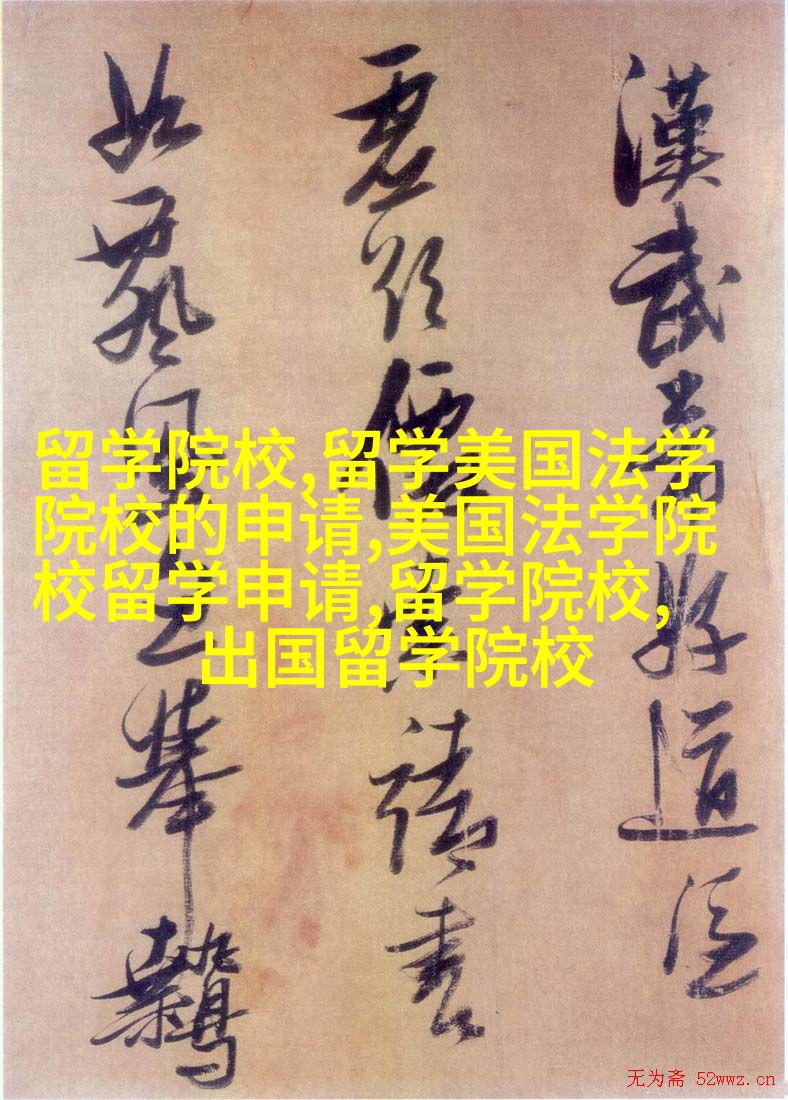 漢武帝好道
虚欲請書
如舉鷙
留学院校,留学美国法学
院校的申请,美国法学院
校留学申请,留学院校,
出国留学院校
无为斋 52wwz.cn